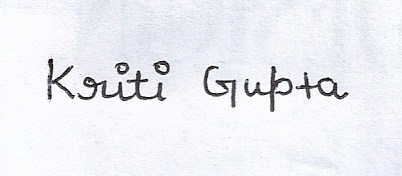 Kriti Gupta